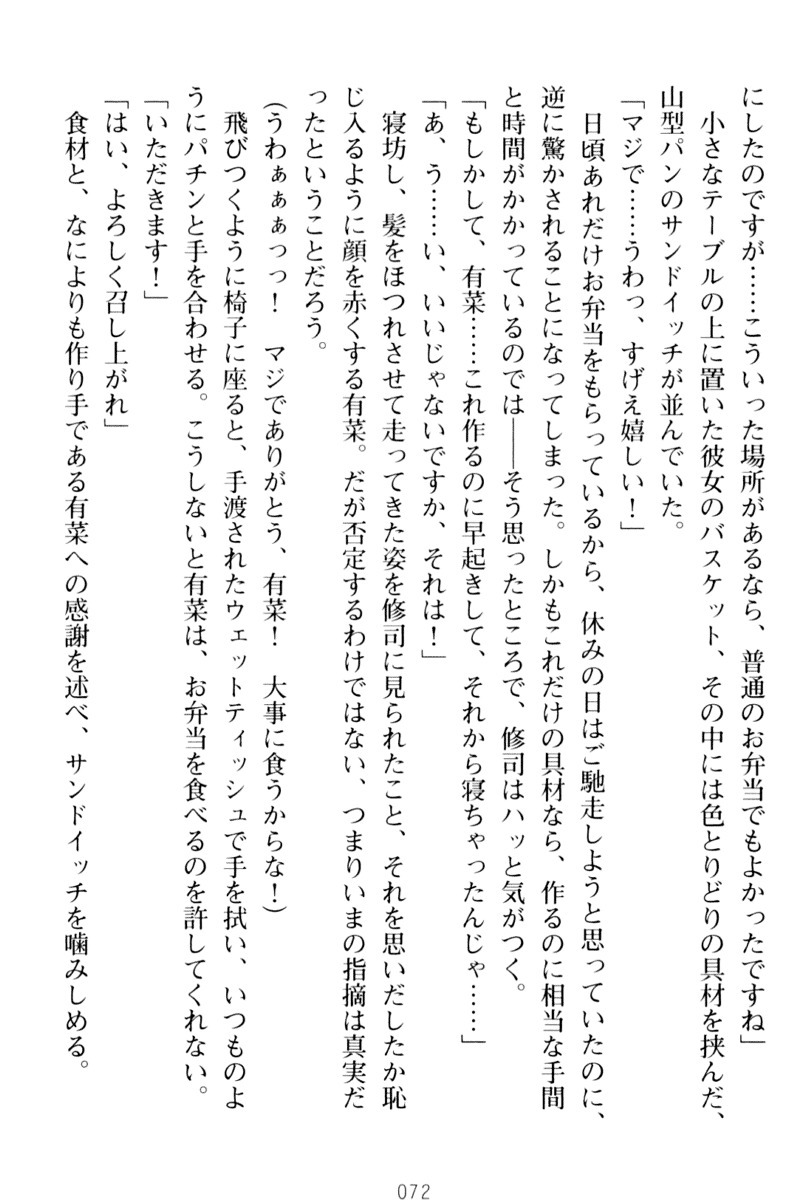 にしたのですが……こういった場所があるなら、普通のお弁当でもよかったですね」
　小さなテーブルの上に置いた彼女のバスケット、その中には色とりどりの具材を挟んだ、
山型パンのサンドイッチが並んでいた。
「マジで……うわっ、すげえ嬉しい！」
　日頃あれだけお弁当をもらっているから、休みの日はご馳走しようと思っていたのに、
逆に驚かされることになってしまった。しかもこれだけの具材なら、作るのに相当な手間
と時間がかかっているのでは――そう思ったところで、修司はハッと気がつく。
「もしかして、有菜……これ作るのに早起きして、それから寝ちゃったんじゃ……」
「あ、う……い、いいじゃないですか、それは！」
　寝坊し、髪をほつれさせて走ってきた姿を修司に見られたこと、それを思いだしたか恥
じ入るように顔を赤くする有菜。だが否定するわけではない、つまりいまの指摘は真実だ
ったということだろう。
（うわぁぁぁっっ！　マジでありがとう、有菜！　大事に食うからな！）
　飛びつくように椅子に座ると、手渡されたウェットティッシュで手を拭い、いつものよ
うにパチンと手を合わせる。こうしないと有菜は、お弁当を食べるのを許してくれない。
「いただきます！」
「はい、よろしく召し上がれ」
　食材と、なによりも作り手である有菜への感謝を述べ、サンドイッチを噛みしめる。
072